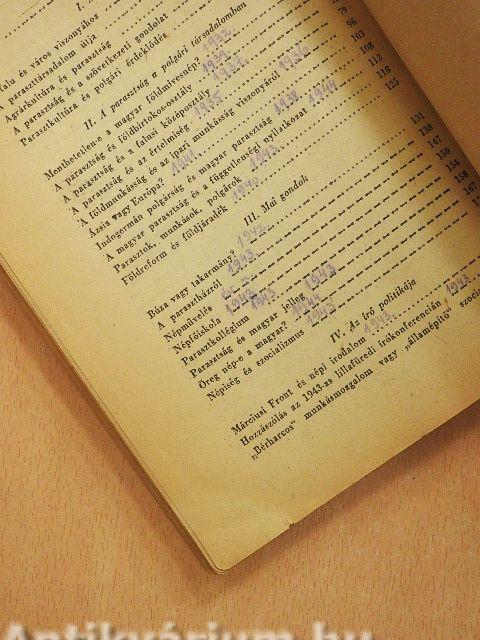 I.
Falu és város viszonyához
A paraszttársadalom útja
Agrárkultúra és parasztság
A parasztság és a szövetkezeti gondolat
Parasztkultúra és polgári érdeklődés
II. A parasztság a polgári társadalomban
Menthetetlen-e a magyar földmívesnép? 1932. 79
A parasztság és földbirtokososztály 1939. 96
A parasztság és a falusi középosztály 1937. 103
A parasztság és az értelmiség 1935 108
A földmunkásság és az ipari munkásság viszonyáról 1936 113
Ázsia vagy Európa? 1941. 118
Indogermán polgárság és magyar parasztság 1938. 125
A magyar parasztság és a függetlenségi nyilatkozat 1944
Parasztok, munkások, polgárok 1943.
Földreform és földjáradék 1940.
III. Mai gondok
Búza vagy takarmány? 1942. 131
A parasztházról 1943. 138
Népművelés 147
Népfőiskola 1942. 150
Parasztkollégium 1943 154
Parasztság és magyar jelleg 1943 158
Öreg nép-e a magyar? 1944 167
Népiség és szocializmus 1943
IV. Az író politikája
Márciusi Front és népi irodalom 1943.
Hozzászólás az 1943-as lillafüredi írókonferencián 1943.
„Bérharcos" munkásmozgalom vagy „államépítő"
Antikvárium.hu